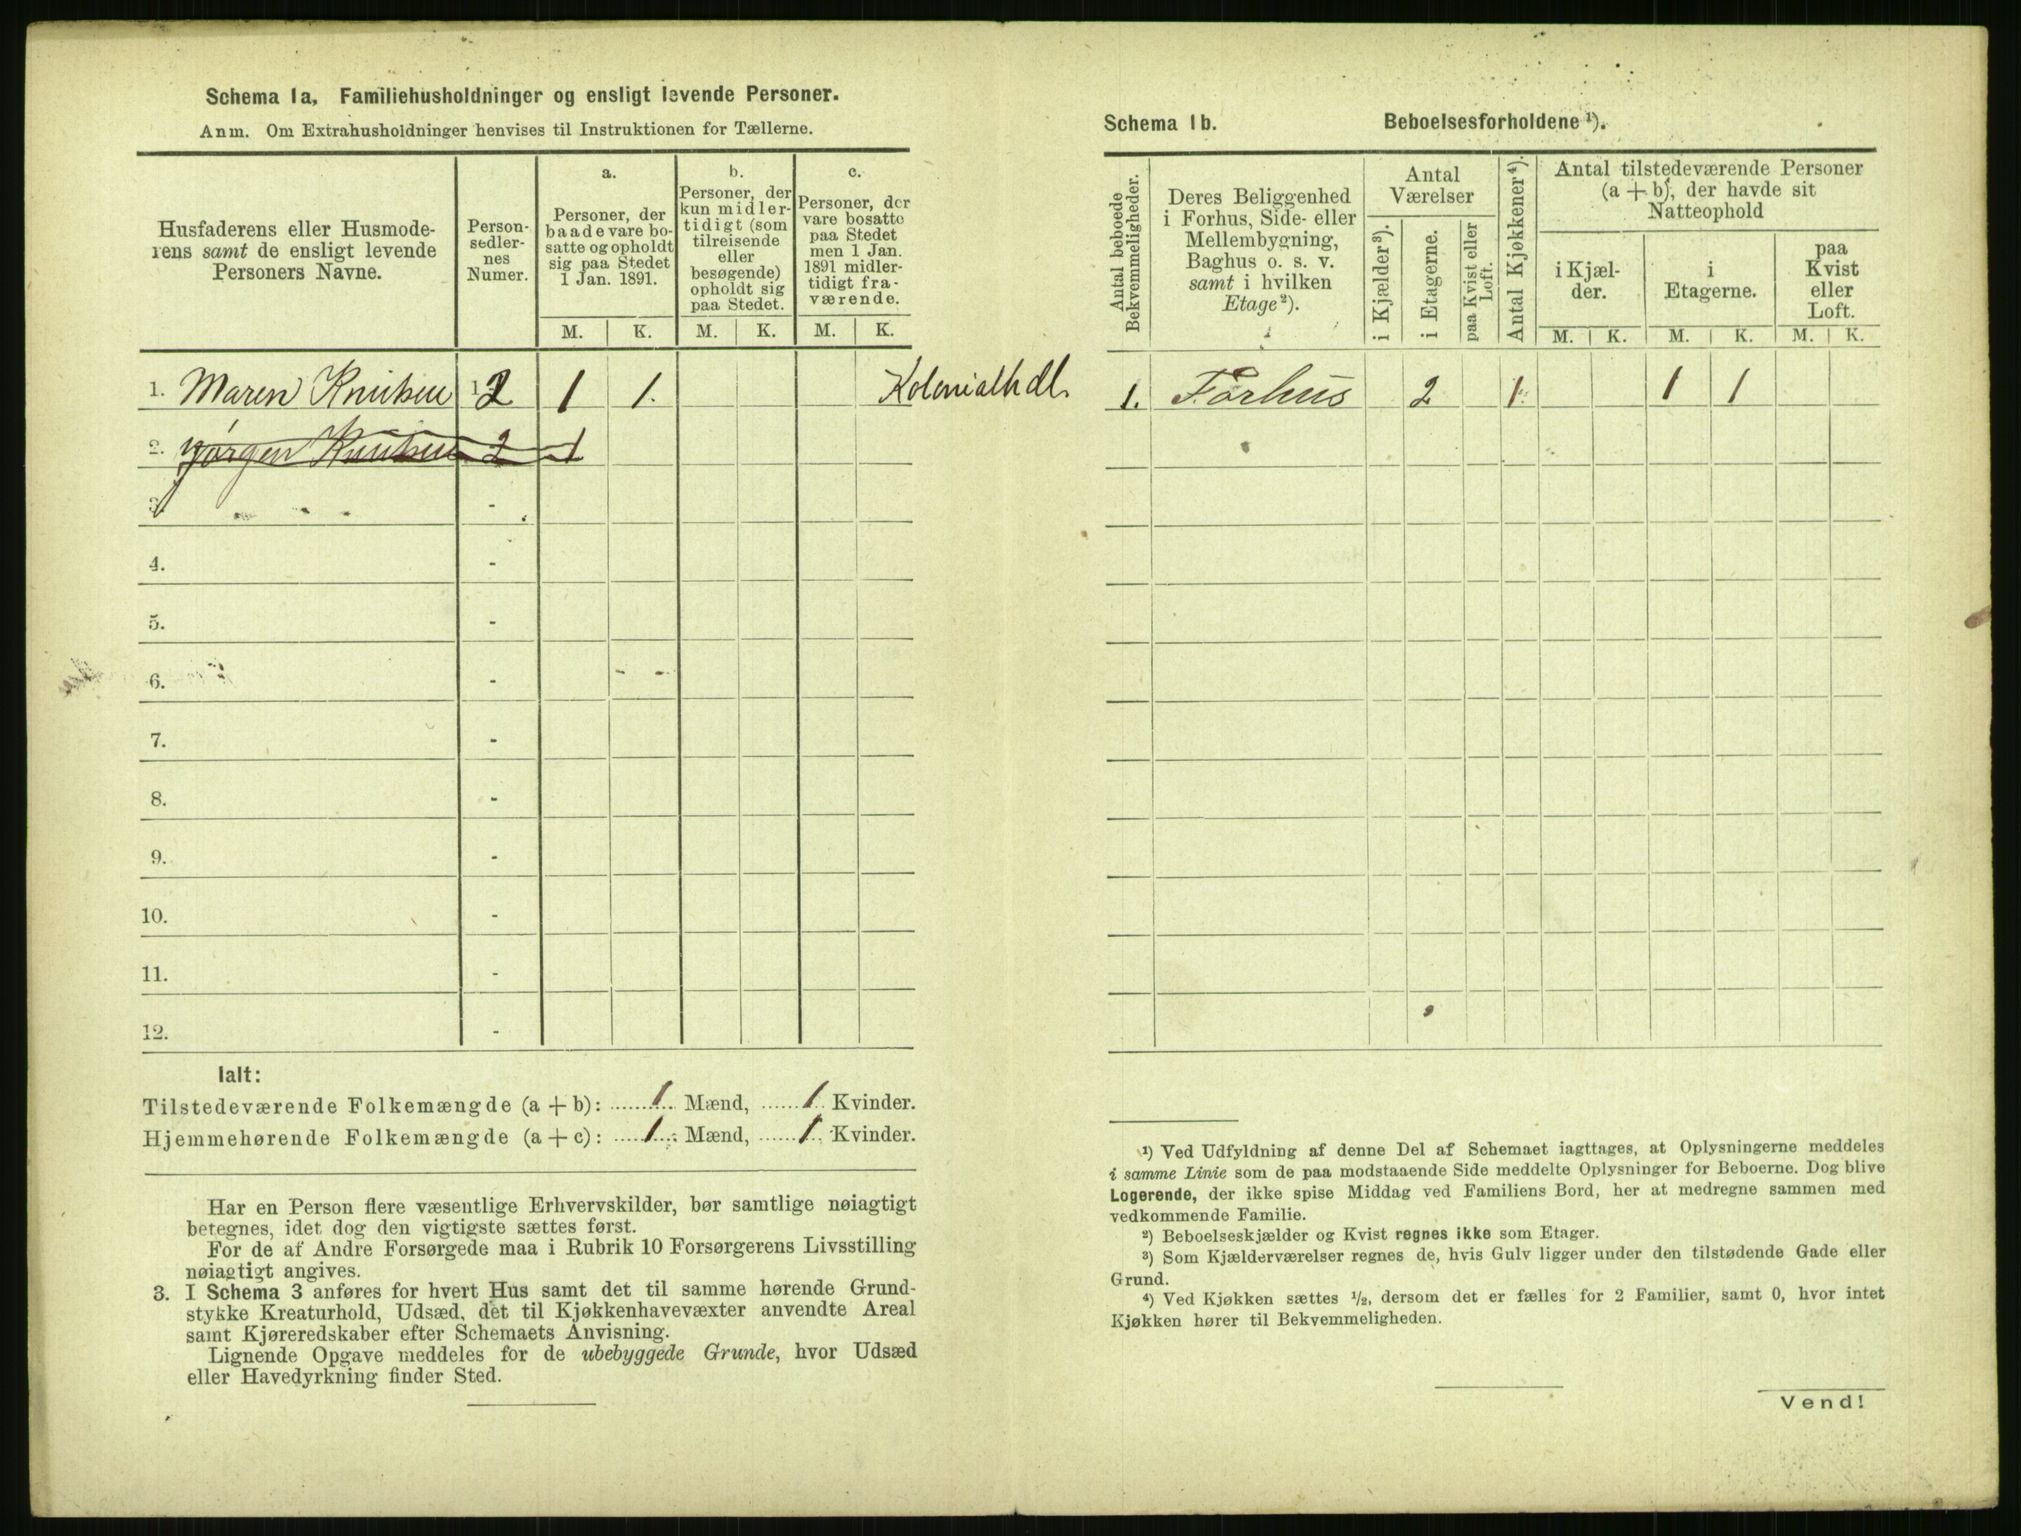 Schema 1a, Familiehusholdninger og ensligt levende Personer.
Anm. Om Extrahusholdninger henvises til Instruktionen for Tællerne.
Husfaderens eller Husmoderens samt de ensligt levende Personers Navne.
Personsedlernes Numer.
a.
Personer, der baade vare bosatte og opholdt sig paa Stedet 1 Jan. 1891.
b.
Personer, der kun midlertidigt (som tilreisende eller besøgende) opholdt sig paa Stedet.
c.
Personer, der vare bosatte paa Stedet men 1 Jan. 1891 midlertidigt fraværende.
M. K. M. K. M. K.
1. Maren Knutsen 2 1 1. Kolonialhdl.
2. Jørgen Knutsen 2 1
3. -
4. -
5. -
6. -
7. -
8. -
9. -
10. -
11. -
12. -
Ialt:
Tilstedeværende Folkemængde (a + b): 1 Mænd, 1 Kvinder.
Hjemmehørende Folkemængde (a + c): 1 Mænd, 1 Kvinder.
Har en Person flere væsentlige Erhvervskilder, bør samtlige nøiagtigt
betegnes, idet dog den vigtigste sættes først.
For de af Andre Forsørgede maa i Rubrik 10 Forsørgerens Livsstilling
nøiagtigt angives.
3. I Schema 3 anføres for hvert Hus samt det til samme hørende Grund-
stykke Kreaturhold, Udsæd, det til Kjøkkenhavevæxter anvendte Areal
samt Kjøreredskaber efter Schemaets Anvisning.
Lignende Opgave meddeles for de ubebyggede Grunde, hvor Udsæd
eller Havedyrkning finder Sted.
Schema 1b. Beboelsesforholdene ¹).
Antal beboede Bekvemmeligheder.
Deres Beliggenhed i Forhus, Side- eller Mellembygning, Baghus o. s. v. samt i hvilken Etage²).
Antal Værelser
i Kjælder³).
i Etagerne.
paa Kvist eller Loft.
Antal Kjøkkener⁴).
Antal tilstedeværende Personer (a + b), der havde sit Natteophold
i Kjælder.
i Etagerne.
paa Kvist eller Loft.
M. K. M. K. M. K.
1. Forhus 2 1 1 1
¹) Ved Udfyldning af denne Del af Schemaet iagttages, at Oplysningerne meddeles
i samme Linie som de paa modstaaende Side meddelte Oplysninger for Beboerne. Dog blive
Logerende, der ikke spise Middag ved Familiens Bord, her at medregne sammen med
vedkommende Familie.
²) Beboelseskjælder og Kvist regnes ikke som Etager.
³) Som Kjælderværelser regnes de, hvis Gulv ligger under den tilstødende Gade eller
Grund.
⁴) Ved Kjøkken sættes ½, dersom det er fælles for 2 Familier, samt 0, hvor intet
Kjøkken hører til Bekvemmeligheden.
Vend!